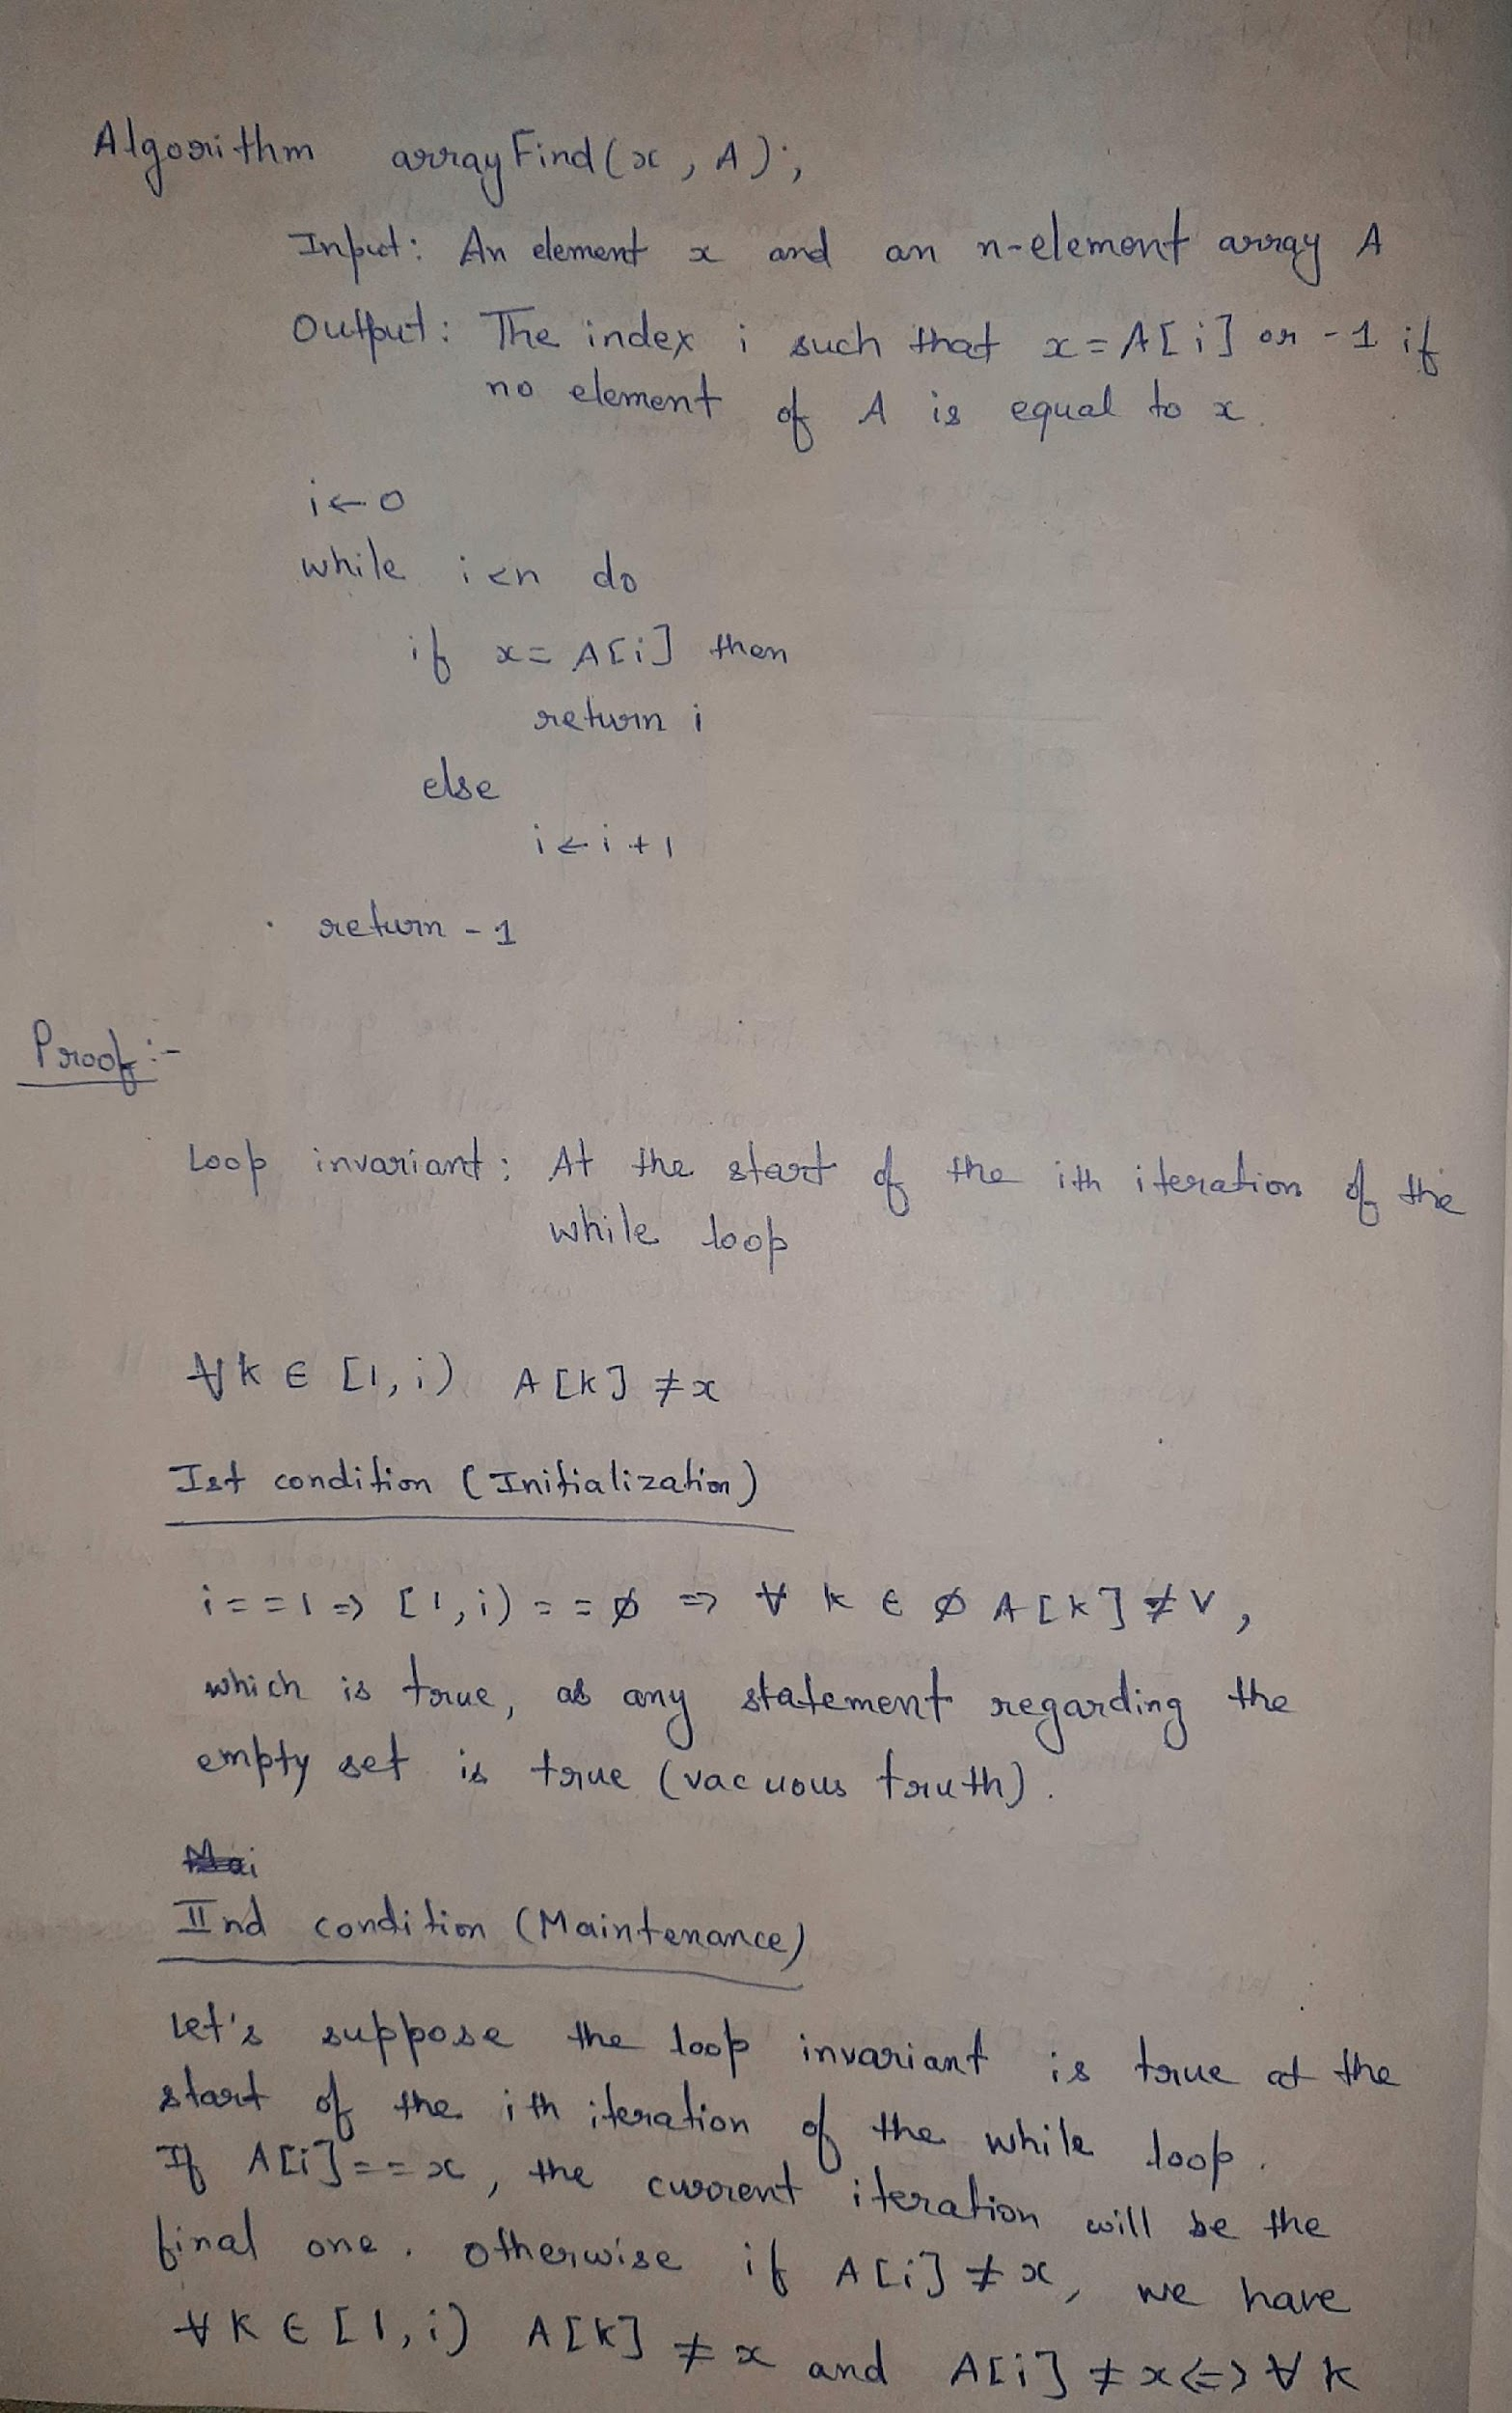 Algorithm arrayFind(x, A);
Input: An element x and an n-element array A
Output: The index i such that x=A[i] or -1 if
no element of A is equal to x.
i←0
while i<n do
if x=A[i] then
return i
else
i←i+1
return -1
Proof:-
Loop invariant: At the start of the ith iteration of the
while loop
∀k∈[1,i) A[k]≠x
Ist condition (Initialization)
i==1⇒[1,i)==∅ ⇒ ∀ k ∈ ∅ A[k]≠V,
which is true, as any statement regarding the
empty set is true (vacuous truth).
IInd condition (Maintenance)
Let's suppose the loop invariant is true at the
start of the ith iteration of the while loop.
If A[i]==x, the current iteration will be the
final one. otherwise if A[i]≠x, we have
∀k∈[1,i) A[k]≠x and A[i]≠x⇔∀k